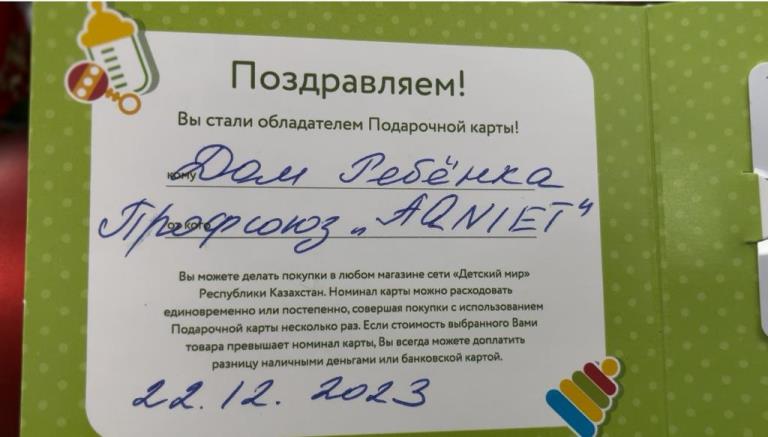 Поздравляем!
Вы стали обладателем Подарочной карты!
кому Дом Ребёнка
от кого Профсоюз „AQNIET"
Вы можете делать покупки в любом магазине сети «Детский мир»
Республики Казахстан. Номинал карты можно расходовать
единовременно или постепенно, совершая покупки с использованием
Подарочной карты несколько раз. Если стоимость выбранного Вами
товара превышает номинал карты, Вы всегда можете доплатить
разницу наличными деньгами или банковской картой.
22.12.2023